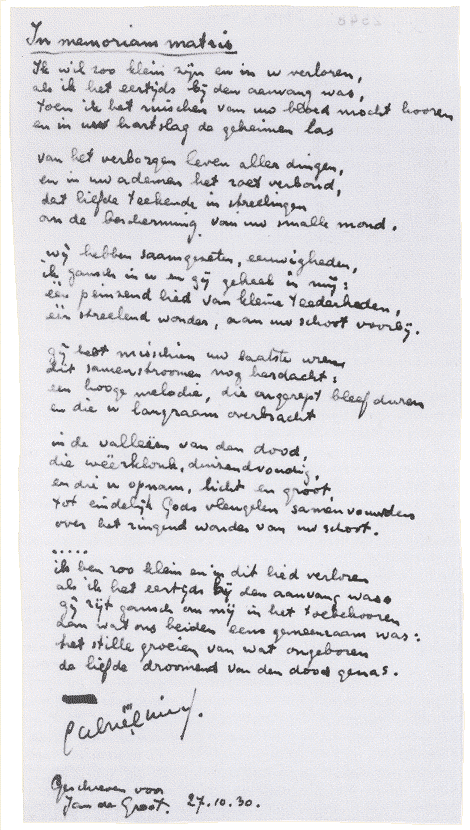 In memoriam matris
Ik wil zoo klein zijn en in u verloren,
als ik het eertijds bij den aanvang was,
toen ik het ruischen van uw bloed mocht hooren
en in uw hartslag de geheimen las
van het verborgen leven aller dingen,
en in uw ademen het zoet verbond,
dat liefde teekende in streelingen
om de bescherming van uw smalle mond.
wij hebben saamgezeten, eeuwigheden,
ik gansch in u en gij geheel in mij:
één peinzend lied van kleine teederheden,
één streelend wonder, aan uw schoot voorbij.
gij hebt misschien uw laatste uren
dit samenstroomen nog herdacht:
een hooge melodie, die ongerept bleef duren
en die u langzaam overbracht
in de valleien van den dood,
die weerklonk, duizendvoudig,
en die u opnam, licht en groot,
tot eindelijk Gods vleugelen samenvouwden
over het zingend wonder van uw schoot.
.....
ik ben zoo klein en in dit lied verloren
als ik het eertijds bij den aanvang was
gij zijt gansch om mij in het toebehooren
aan wat ons beiden eens gemeenzaam was:
het stille groeien van wat ongeboren
de liefde droomend van den dood genas.
Geschreven voor
Jan de Groot. 27.10.30.